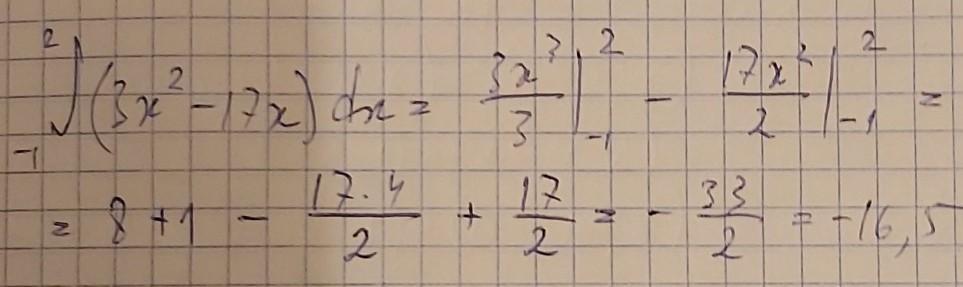 ∫₋₁² (3x² - 17x) dx = 3x³/3 |₋₁² - 17x²/2 |₋₁² =
= 8 + 1 - 17·4/2 + 17/2 = - 33/2 = -16,5